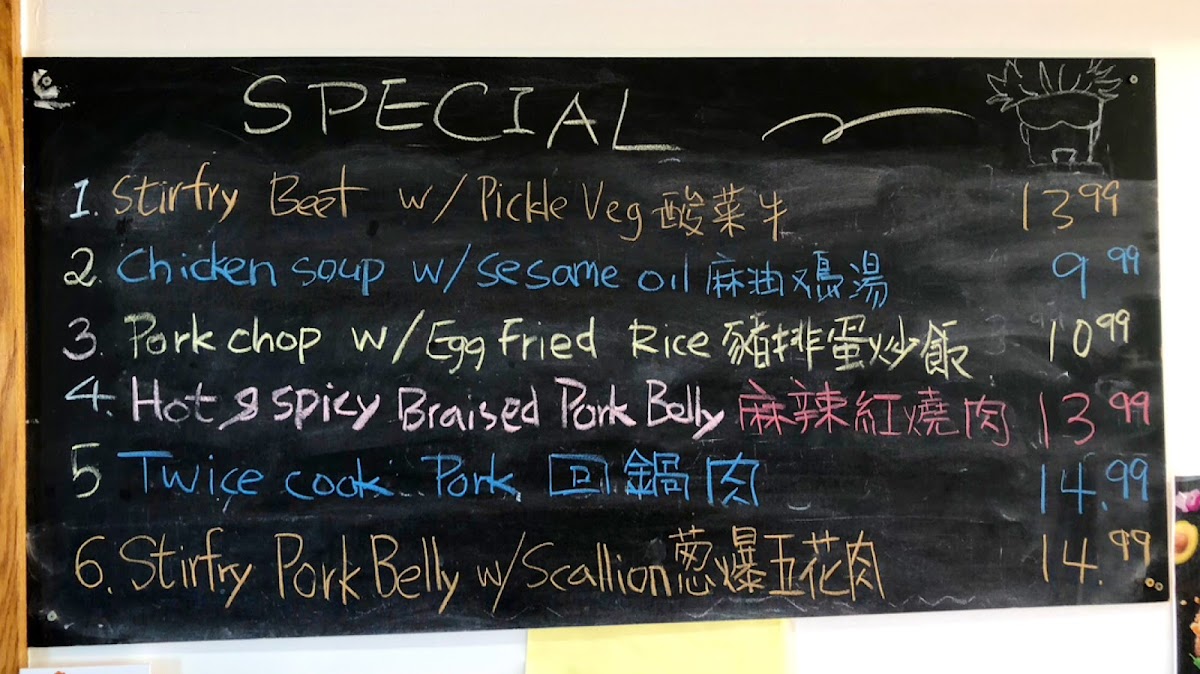 SPECIAL
1. Stirfry Beef w/ Pickle Veg 酸菜牛 13.99
2. Chicken soup w/ sesame oil 麻油鸡湯 9.99
3. Pork chop w/ Egg Fried Rice 豬排蛋炒飯 10.99
4. Hot & spicy Braised Pork Belly 麻辣紅燒肉 13.99
5 Twice cook Pork 回鍋肉 14.99
6. Stirfry Pork Belly w/ Scallion 葱爆五花肉 14.99